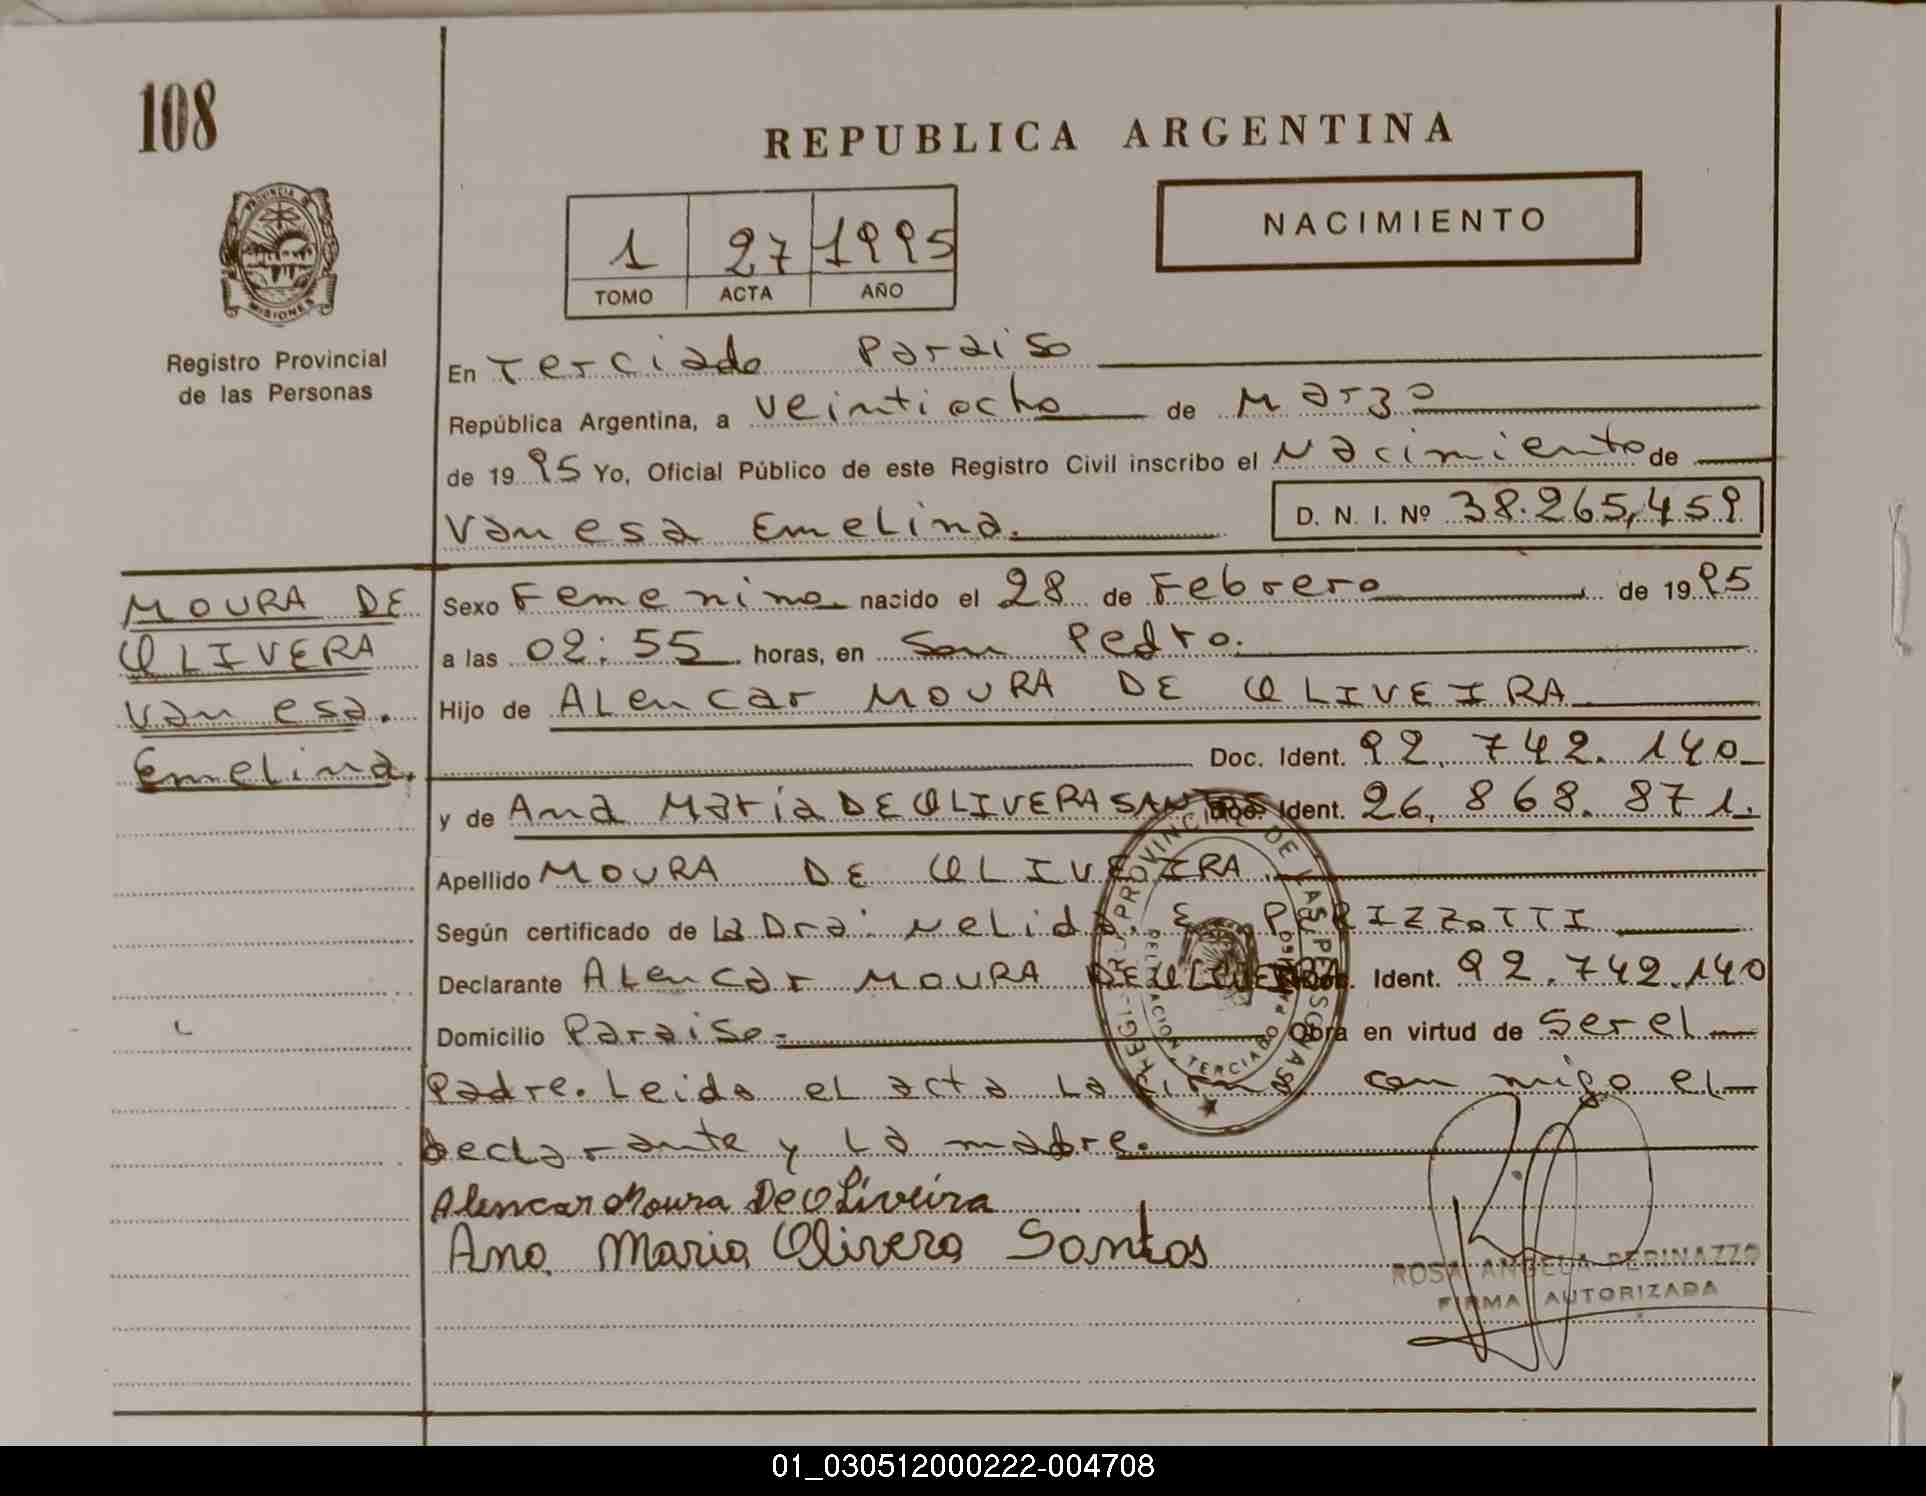 108
REPUBLICA ARGENTINA
PROVINCIA DE
MISIONES
Registro Provincial
de las Personas
1 27 1995
TOMO ACTA AÑO
NACIMIENTO
En Terciado Paraiso
República Argentina, a veintiocho de Marzo
de 1995 Yo, Oficial Público de este Registro Civil inscribo el Nacimiento de
Vanesa Emelina. D. N. I. Nº 38.265,459
MOURA DE
OLIVERA
Vanesa.
Emelina.
Sexo Femenino nacido el 28 de Febrero de 1995
a las 02:55 horas, en San Pedro.
Hijo de ALencar MOURA DE OLIVEIRA
Doc. Ident. 92.742.140
y de Ana María DE OLIVERA SANTOS Doc. Ident. 26.868.871.
Apellido MOURA DE OLIVEIRA
Según certificado de La Dra: Nelida. E. PERIZZOTTI
Declarante ALencar MOURA DE OLIVEIRA Doc. Ident. 92.742.140
Domicilio Paraiso.- Obra en virtud de Ser el
Padre. Leida el acta La firma con migo el
declarante y La madre.
Alencar Moura De oLiveira
Ana Maria Olivera Santos
REGISTRO PROVINCIAL DE LAS PERSONAS
DELEGACION TERCIADO PARAISO
ROSA ANGELA PERINAZZO
FIRMA AUTORIZADA
01_030512000222-004708